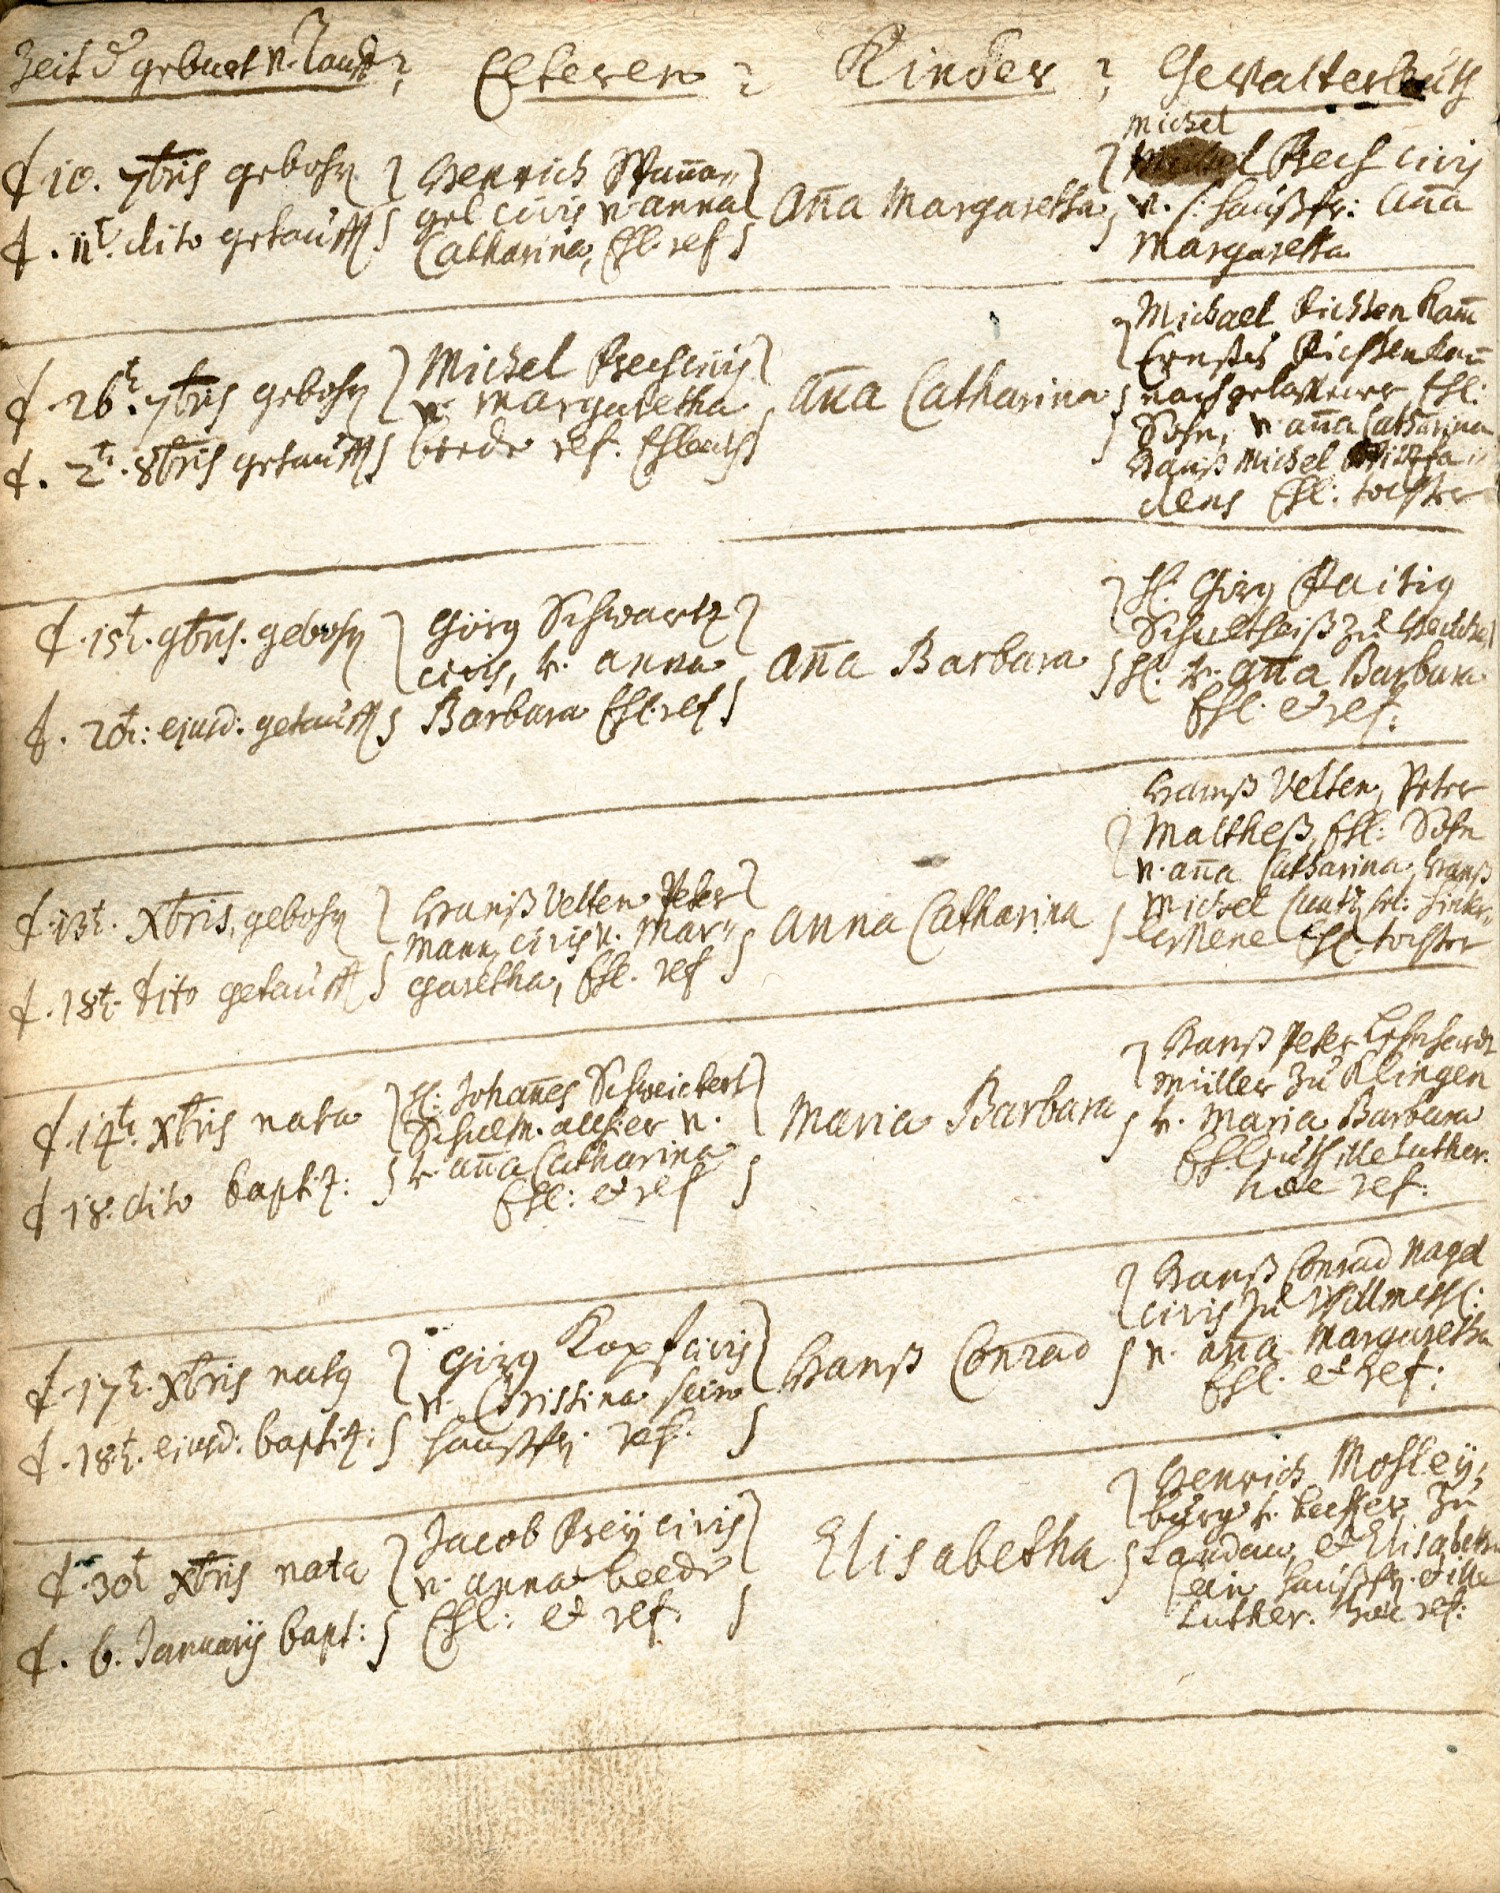 Zeit d. geburt v. Tauff
Elteren
Kinder
Gevalterleuth
d. 10. 7bris gebohrn
d. 11t. dito getaufft
Henrich
gel civis v. anna
Catharina, Ehl. ref
Aña Margaretha
Michel
Bech civis
v. s. haußfr: Aña
Margaretha
d. 26t. 7bris gebohrn
d. 2t. 8bris getaufft
Michel Bech civis
v. Margaretha
beede ref. Ehleuth
Aña Catharina
Michael
Ernsts
nachgelassener Ehl:
Sohn, v. aña Catharina
Hanß Michel
dens Ehl: tochter
d. 15t. 9bris. gebohrn
d. 20t: ejusd: getaufft
Görg Schwartz
civis, v. anna
Barbara Ehl. ref
Aña Barbara
H. Görg
Schultheiß zu
H. v. aña Barbara
Ehl. et ref:
d. 13t. Xbris, gebohrn
d. 18t. dito getaufft
Hanß Velten Peter
Mann, civis v. Mar
garetha, Ehl. ref
Anna Catharina
Hanß Velten, Peter
Ehl: Sohn
v. aña Catharina, Hanß
Michel hinter
lassene Ehl. tochter
d. 14t. Xbris nata
d 18. dito baptiz:
H. Johañes Schweickert
Schultz. allhier v.
v. aña Catharina
Ehl: et ref
Maria Barbara
Hanß Peter Lehnhardt
Müller zu Klingen
v. Maria Barbara
Ehleuth ille Luther.
haec ref:
d. 17t. Xbris natg
d. 18t. ejusd: baptiz:
Görg Kopf civis
v. Christina sein
haußfr. ref.
Hanß Conrad
Hanß Conrad Nagel
civis zu
v. aña Margaretha
Ehl. et ref:
d. 30t Xbris nata
d. 6. Januarÿ bapt:
Jacob Breÿ civis
v. anna beede
Ehl: et ref.
Elisabetha
Henrich Mosleÿ,
burg. v. becker zu
Landau, et Elisabetha
sein haußfr. et ille
Luther. haec ref: